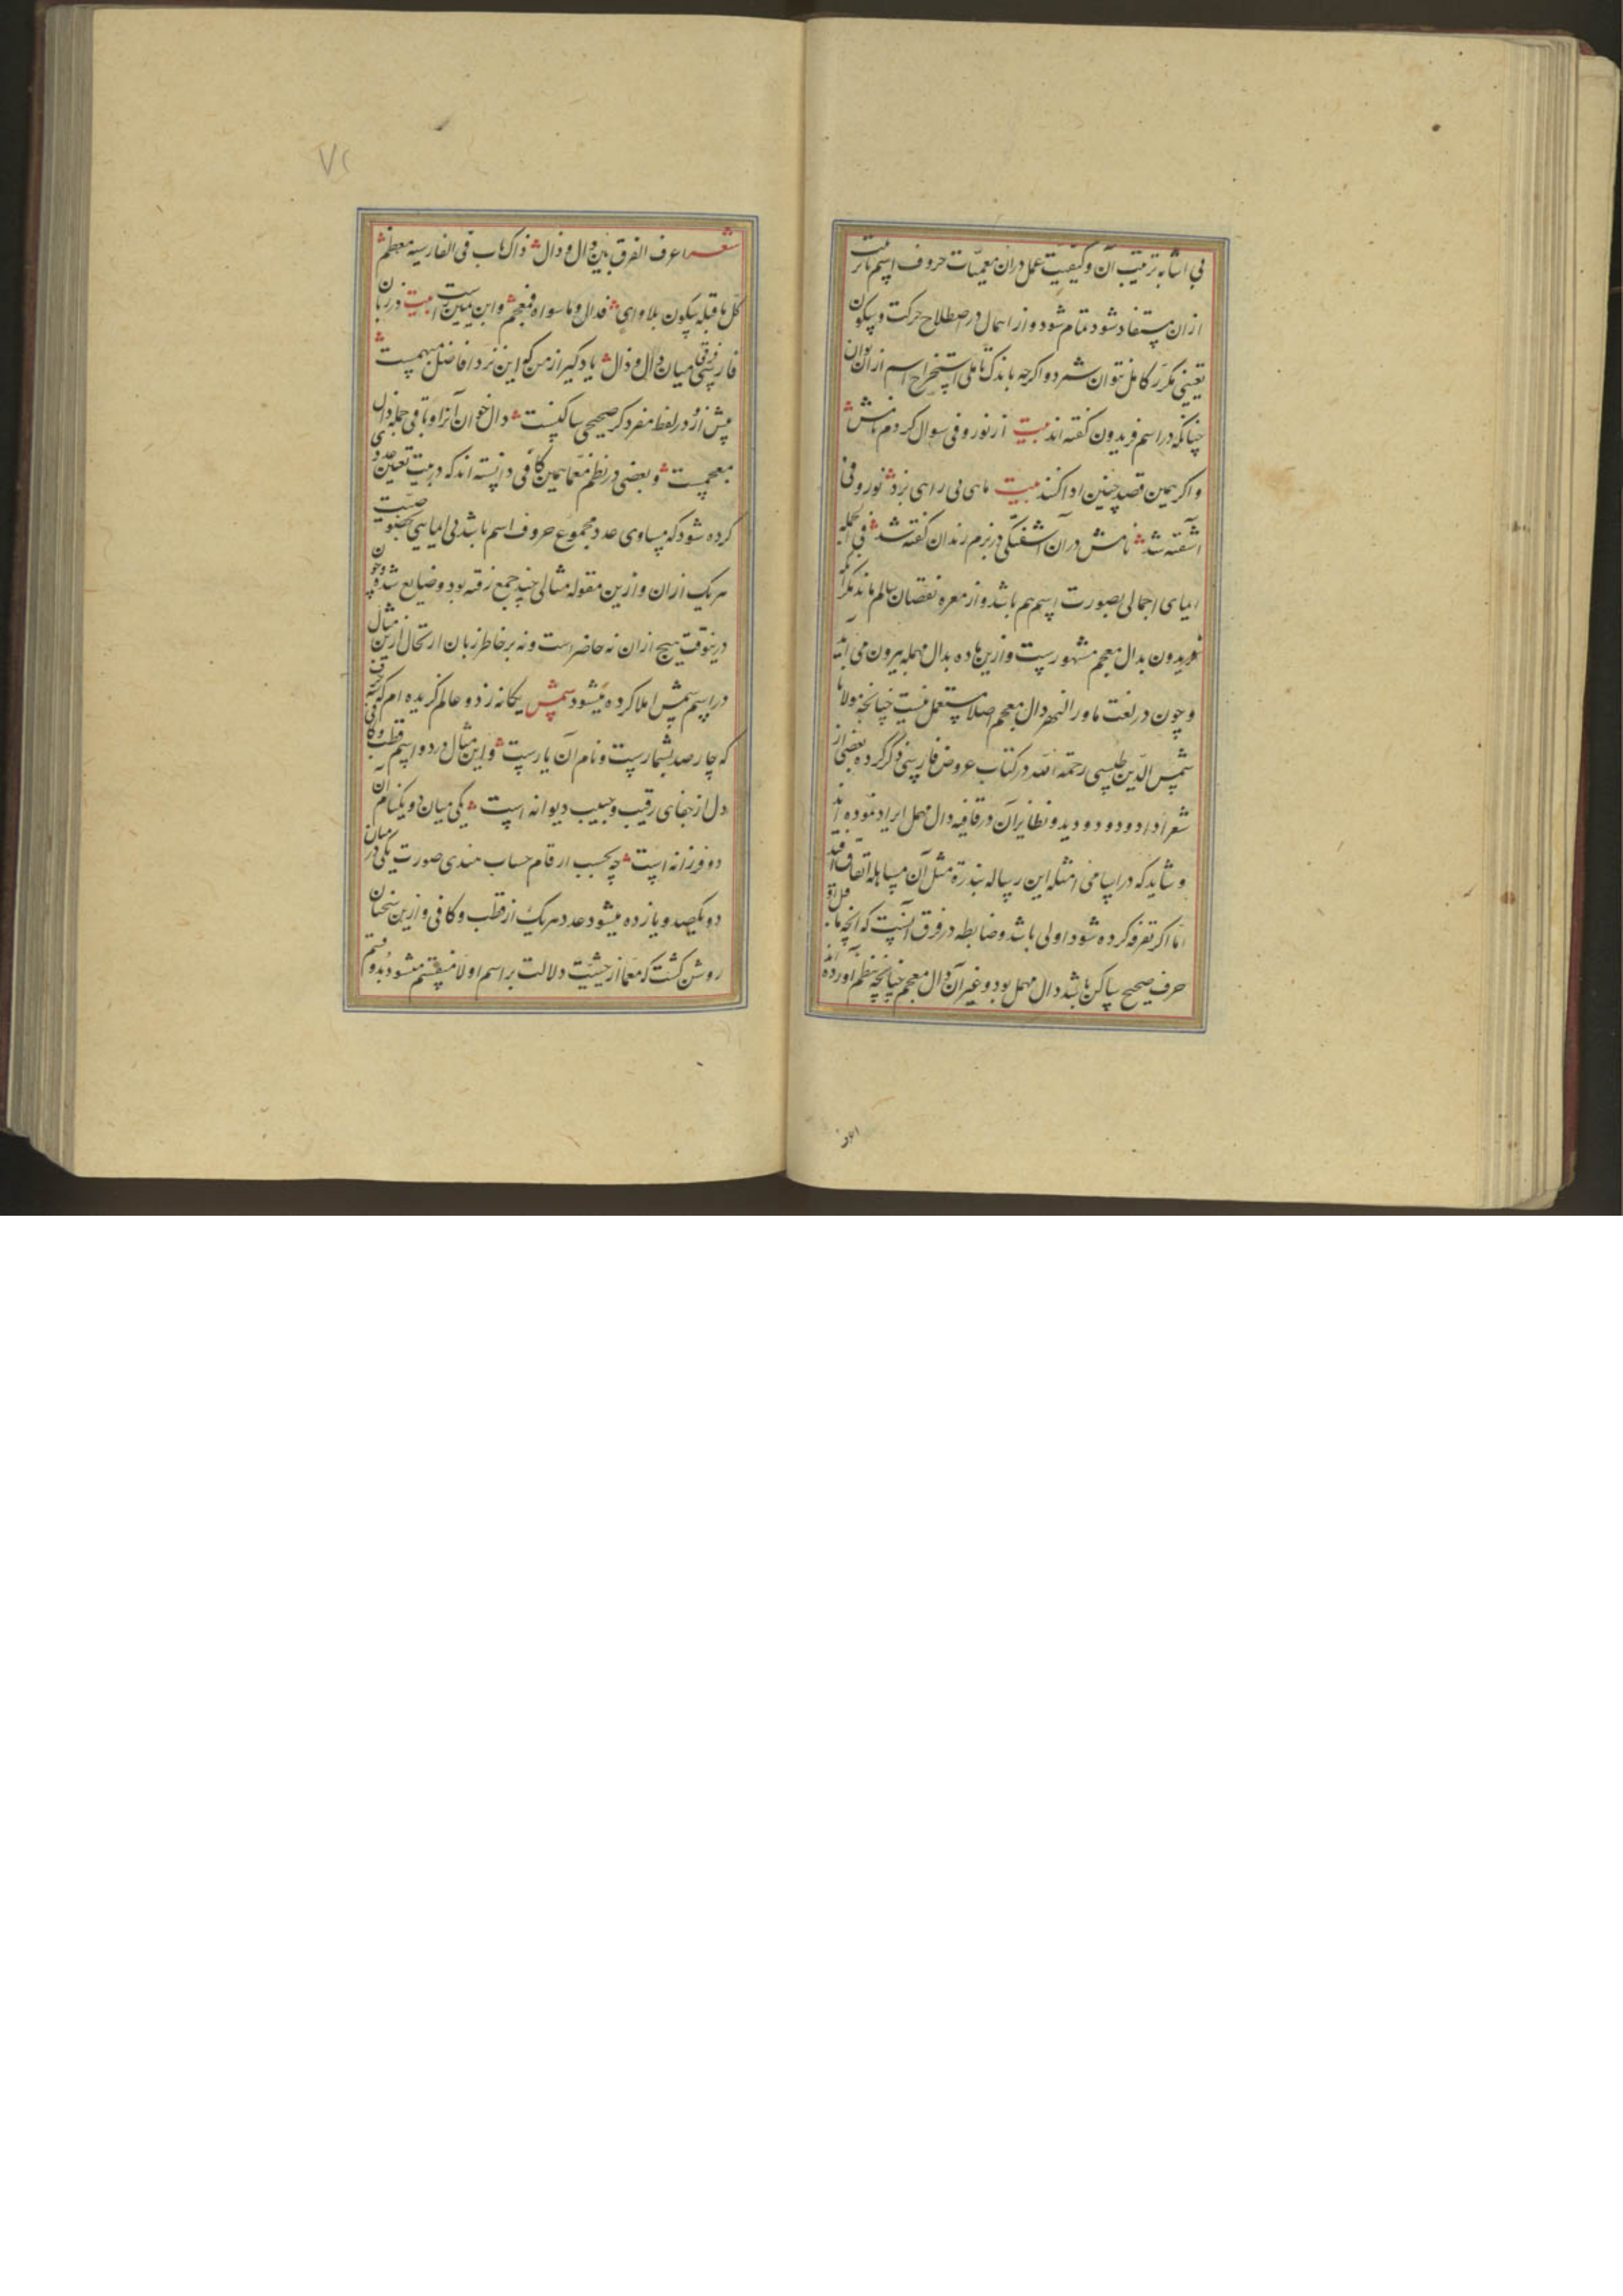 بی اشابه ترتیب آن و کیفیت عمل دران معمیات حروف اسم با ترتیب
ازان مستفاد شود تمام شود و از اهمال در اصطلاح حرکت و سکون
تعیینی مکرر کامل نتوان شمرد و اگرچه باندک تاملی استخراج اسم ازان توان
چنانکه در اسم فریدون کفته اند بیت از نور و فی سوال کردم نامش
و اکر همین قصد چنین ادا کنند بیت ماهی بی راهی نزد نور و فی
آشفته شد نامش در آن آشفتگی در بزم رندان کفته شد فی الجمله
ایمای اجمالی بصورت اسم هم باشد و از معره نقصان سالم ماند مکر آنکه
فریدون بدال معجم مشهورست و ازین ماده بدال مهمله بیرون می آید
و چون در لغت ماورالنهر دال معجم اصلا مستعمل نیست چنانچه مولانا
شمس الدین طبسی رحمة الله در کتاب عروض فارسی ذکر کرده بعضی از
شعرا داد و دود و دید و نظایر آن در قافیه دال مهمل ایراد نموده اند
و شاید که در اسامی امثله این رساله بندرة مثل آن مساهله اتفاق افتد
اما اکر تفرقه کرده شود اولی باشد و ضابطه در فرق آنست که آنچه ماقبل او
حرف صحیح ساکن باشد دال مهمل بود و غیر آن دال معجم چنانچه بنظم آورده اند
شعر اعرف الفرق بین دال و ذال ذاک باب فی الفارسیه معظم
کل ما قبله سکون بلا وای فدال و ما سواه فمعجم و ابن یمین راست بیت در زبان
فارسی فرق میان دال و ذال یاد کیر از من که این نزد افاضل مبهمست
پیش ازو در لفظ مفرد کر صحیح ساکنست دال خوان آنرا و باقی جمله ذال
معجمست و بعضی در نظم معما همین کافی دانسته اند که در بیت تعیین عددی
کرده شود که مساوی عدد مجموع حروف اسم باشد بی ایمایی بخصوصیت
هر یک ازان و ازین مقوله مثالی چند جمع رفته بود و ضایع شده و چون
درینوقت هیچ ازان نه حاضر است و نه بر خاطر زبان ارتحال ازین مثال
در اسم شمس املا کرده میشود شمس یکانه ز دو عالم کزیده ام که حرف
که چارصد بشمارست و نام آن یارست و این مثال در دو اسم قطب و کافی
دل از جفای رقیب و حبیب دیوانه است یکی میان دو یکنام آن
دو فرزانه است چه بحسب ارقام حساب هندی صورت یکی در میان
دو یکصد و یازده میشود عدد هر یک از قطب و کافی و ازین سخنان
روشن کشت که معما از حیثیت دلالت بر اسم اولا منقسم میشود بدو قسم
۷۲